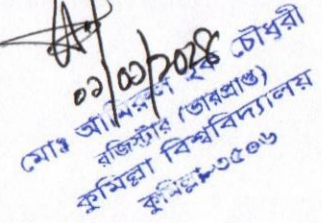 ০১/০১/২০২৪
মোঃ আমিরুল হক চৌধুরী
রেজিস্ট্রার (ভারপ্রাপ্ত)
কুমিল্লা বিশ্ববিদ্যালয়
কুমিল্লা-৩৫০৬